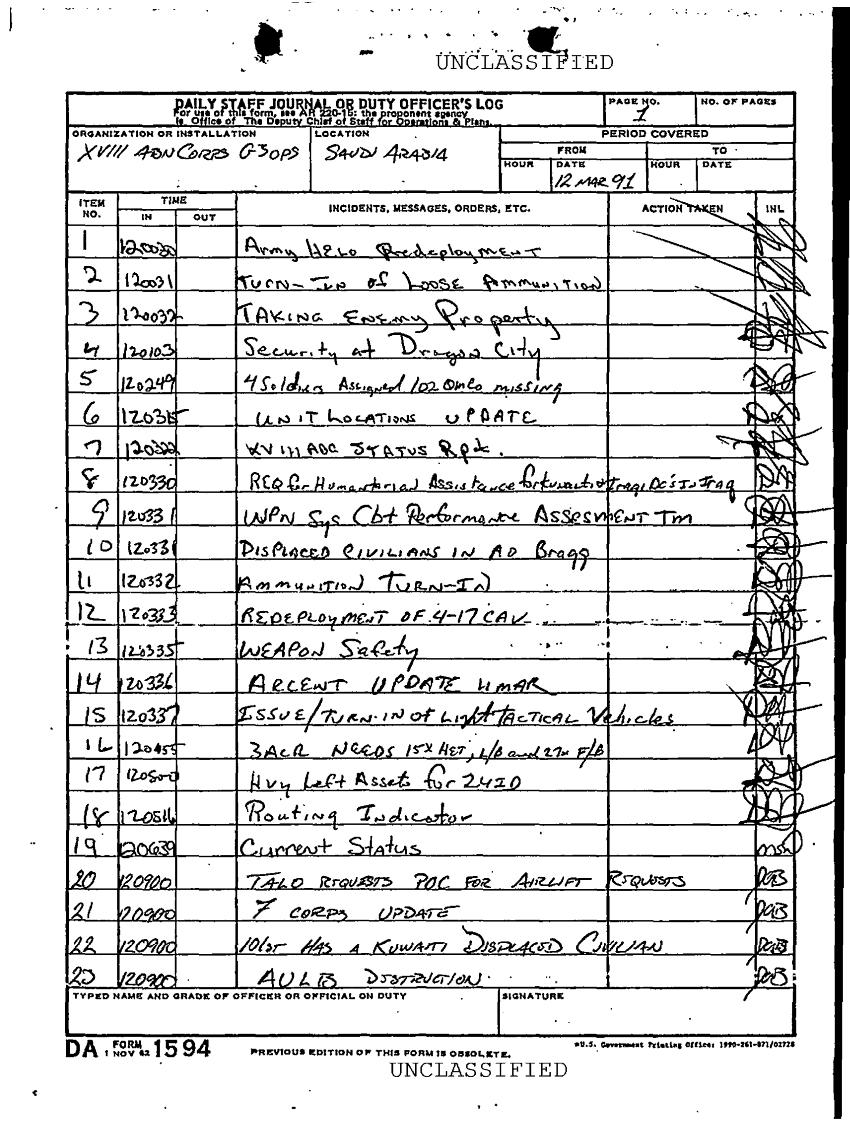 UNCLASSIFIED
DAILY STAFF JOURNAL OR DUTY OFFICER'S LOG
For use of this form, see AR 220-15; the proponent agency
is Office of The Deputy Chief of Staff for Operations & Plans.
PAGE NO.
1
NO. OF PAGES
ORGANIZATION OR INSTALLATION
XVIII ABN CORPS G3 OPS
LOCATION
SAUDI ARABIA
PERIOD COVERED
FROM
TO
HOUR
DATE
12 MAR 91
HOUR
DATE
ITEM NO.
TIME
IN
OUT
INCIDENTS, MESSAGES, ORDERS, ETC.
ACTION TAKEN
INL
1 120030 Army HELO Redeployment
2 120031 TURN-IN of LOOSE AMMUNITION
3 120032 TAKING ENEMY Property
4 120103 Security at Dragon City
5 120249 4 Soldiers Assigned 102 QM Co MISSING
6 120315 UNIT LOCATIONS UPDATE
7 120322 XVIII ABC STATUS Rpt.
8 120330 REQ for Humanitarian Assistance for Kuwaiti & Iraqi DC's In Iraq
9 120331 WPN Sys Cbt Performance ASSESMENT Tm
10 120331 DISPLACED CIVILIANS IN AO Bragg
11 120332 AMMUNITION TURN-IN
12 120333 REDEPLOYMENT OF 4-17 CAV
13 120335 WEAPON Safety
14 120336 ARCENT UPDATE 11 MAR
15 120337 ISSUE/TURN-IN of Light TACTICAL Vehicles
16 120455 3ACR NEEDS 15X HET, L/B and 27X F/B
17 120500 Hvy Left Assets for 24ID
18 120516 Routing Indicator
19 120639 Current Status
20 120900 TALO REQUESTS POC FOR AIRLIFT REQUESTS PGB
21 120900 7 CORPS UPDATE PGB
22 120900 101ST HAS A KUWAITI DISPLACED CIVILIAN PGB
23 120900 AVLB DESTRUCTION PGB
TYPED NAME AND GRADE OF OFFICER OR OFFICIAL ON DUTY
SIGNATURE
DA FORM 1 NOV 62 1594
PREVIOUS EDITION OF THIS FORM IS OBSOLETE.
*U.S. Government Printing Office: 1990-261-871/02728
UNCLASSIFIED